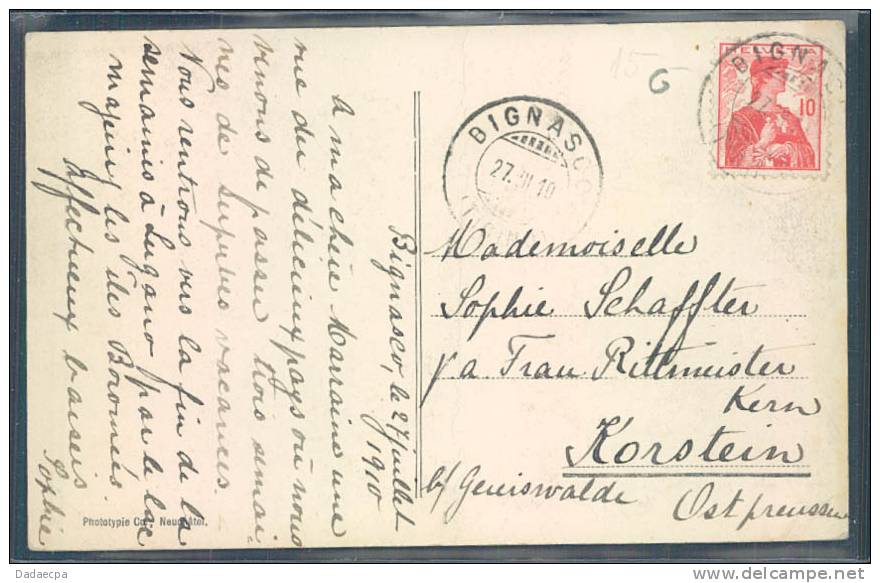 Bignasco, le 27 juillet
1910
A ma chère Marraine une
vue du délicieux pays où nous
venons de passer trois semai
nes de superbes vacances.
Nous rentrons vers la fin de la
semaine à Lugano par le lac
majeur, les îles Boromées.
Affectueux baisers
Sophie
Phototypie Co., Neuchâtel.
15
G
BIGNASCO
27.VII.10
HELVETIA
10
BIGNASC
27
Mademoiselle
Sophie Schaffter
p/a Frau Rittmeister
Kern
Korstein
b/ Geierswalde
Ostpreussen
Dadaecpa